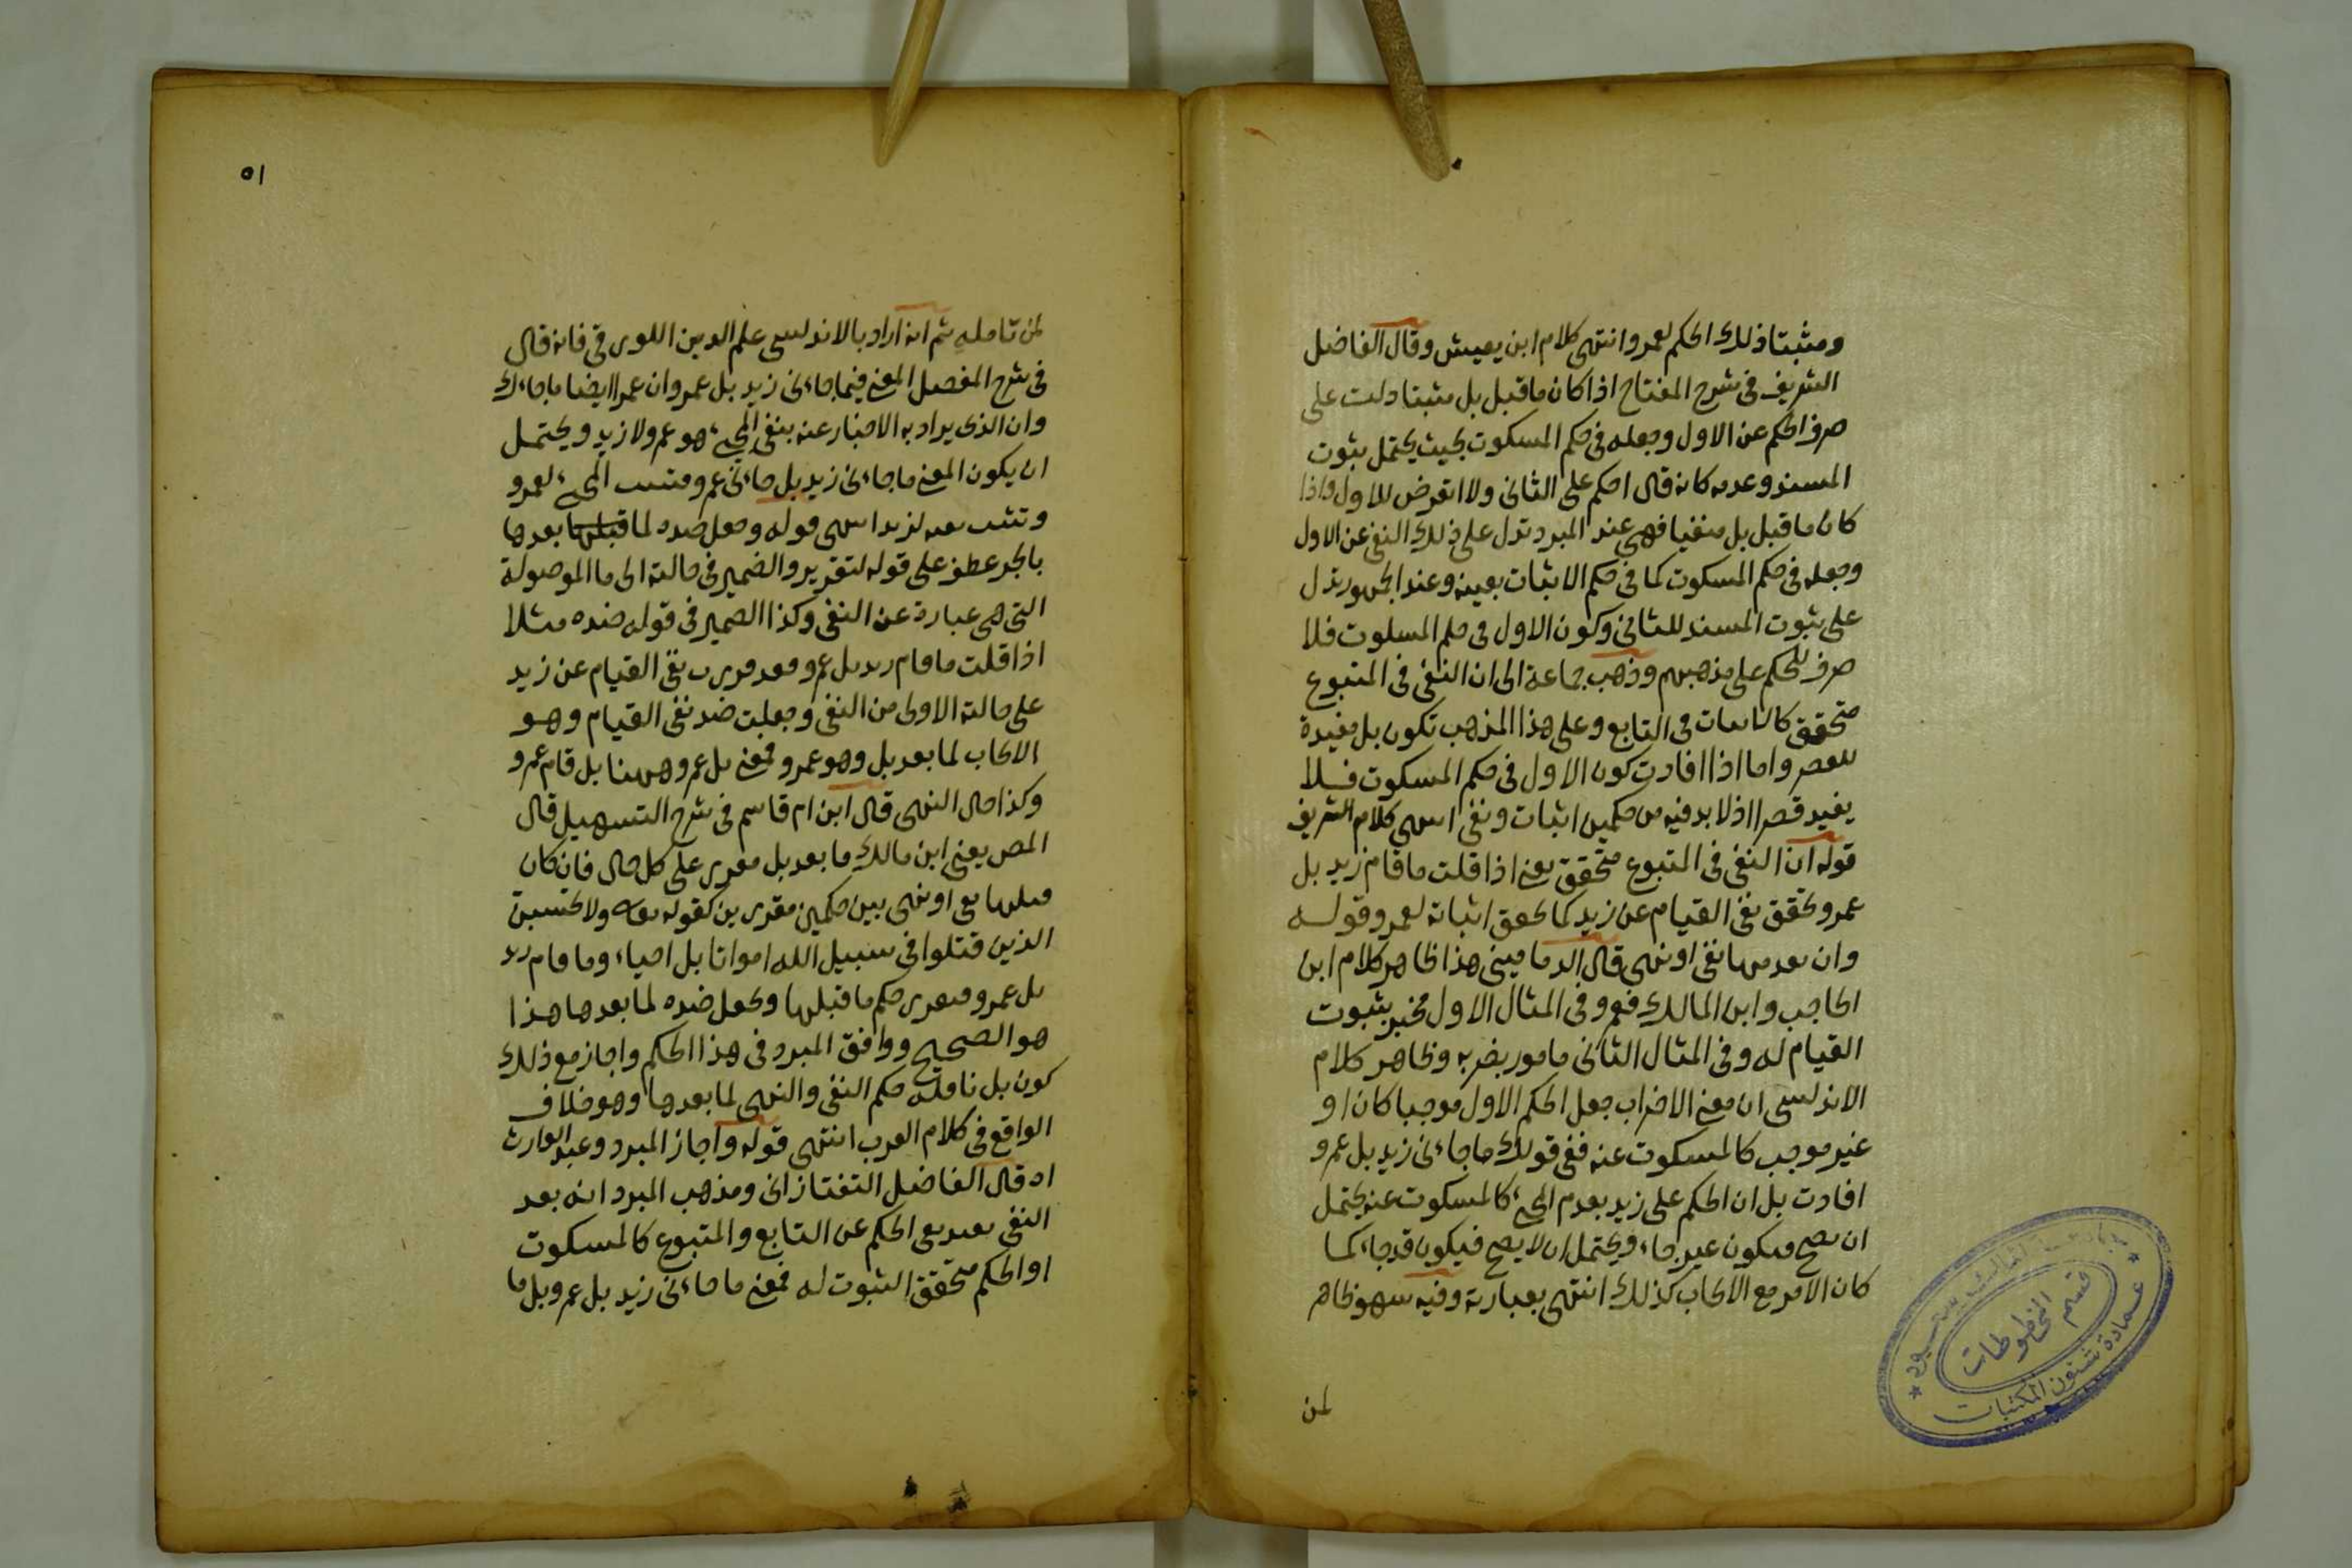 ومثبتا ذلك الحكم لعمرو انتهى كلام ابن يعيش وقال الفاضل
الشريف فى شرح المفتاح اذا كان ما قبل بل مثبتا دلت على
صرف الحكم عن الاول وجعله فى حكم المسكوت بحيث يحتمل ثبوت
المسند وعدمه كانه قال احكم على الثانى ولا اتعرض للاول واذا
كان ما قبل بل منفيا فهى عند المبرد تدل على ذلك النفى عن الاول
وجعله فى حكم المسكوت كما فى حكم الاثبات بعينه وعند الجمهور تدل
على ثبوت المسند للثانى وكون الاول فى حكم المسكوت فلا
صرف للحكم على مذهبهم وذهب جماعة الى ان النفى فى المتبوع
متحقق كالاثبات فى التابع وعلى هذا المذهب تكون بل مفيدة
للقصر واما اذا افادت كون الاول فى حكم المسكوت فلا
يفيد قصرا اذ لا بد فيه من حكمين اثبات ونفى انتهى كلام الشريف
قوله ان النفى فى المتبوع متحقق يعنى اذا قلت ما قام زيد بل
عمرو تحقق نفى القيام عن زيد كما تحقق اثباته لعمرو قوله
وان تقدمها نفى او نهى قال الدمامينى هذا ظاهر كلام ابن
الحاجب وابن المالك فعمرو فى المثال الاول مخبر بثبوت
القيام له وفى المثال الثانى مامور بضربه وظاهر كلام
الاندلسى ان معنى الاضراب جعل الحكم الاول موجبا كان او
غير موجب كالمسكوت عنه ففى قولك ما جاءنى زيد بل عمرو
افادت بل ان الحكم على زيد بعدم المجئ كالمسكوت عنه يحتمل
ان يصح فيكون غير جاء ويحتمل ان لا يصح فيكون قد جاء كما
كان الامر مع الايجاب كذلك انتهى بعبارته وفيه سهو ظاهر
لمن
قسم المخطوطات
عمادة شئون المكتبات
٥١
لمن تامله ثم انه اراد بالاندلسى علم الدين اللورقى فانه قال
فى شرح المفصل المعنى فى ما جاءنى زيد بل عمرو ان عمرا ايضا ما جاءك
وان الذى يراد به الاخبار عنه بنفى المجئ هو عمرو لا زيد ويحتمل
ان يكون المعنى ما جاءنى زيد بل جاءنى عمرو فتثبت المجئ لعمرو
قوله وجعل ضده لما قبلها بعدها
بالجر عطف على قوله لتقرير والضمير فى حالته الى ما الموصولة
التى هى عبارة عن النفى وكذا الضمير فى قوله ضده مثلا
اذا قلت ما قام زيد بل عمرو فقد قررت نفى القيام عن زيد
على حالته الاولى من النفى وجعلت ضد نفى القيام وهو
الايجاب لما بعد بل وهو عمرو فمعنى بل عمرو ههنا بل قام عمرو
وكذا حال النهى قال ابن ام قاسم فى شرح التسهيل قال
المص يعنى ابن مالك ما بعد بل مقرر على كل حال فان كان
قبلها نفى او نهى بين حكمين مقررين كقوله تعالى ولا تحسبن
الذين قتلوا فى سبيل الله امواتا بل احياء وما قام زيد
بل عمرو فيقرر حكم ما قبلها ويجعل ضده لما بعدها هذا
هو الصحيح ووافق المبرد فى هذا الحكم واجاز مع ذلك
كون بل ناقلة حكم النفى والنهى لما بعدها وهو خلاف
الواقع فى كلام العرب انتهى قوله واجاز المبرد وعبد الوارث
اه قال الفاضل التفتازانى ومذهب المبرد انه بعد
النفى يفيد نفى الحكم عن التابع والمتبوع كالمسكوت
او الحكم متحقق الثبوت له فمعنى ما جاءنى زيد بل عمرو بل ما